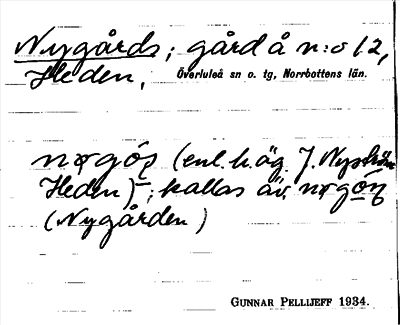 Nygårds; gård å n:o 12,
Heden,
Överluleå sn o. tg, Norrbottens län.
(enl. h. äg. J. Nyström
Heden); kallas äv.
(Nygården)
GUNNAR PELLIJEFF 1934.